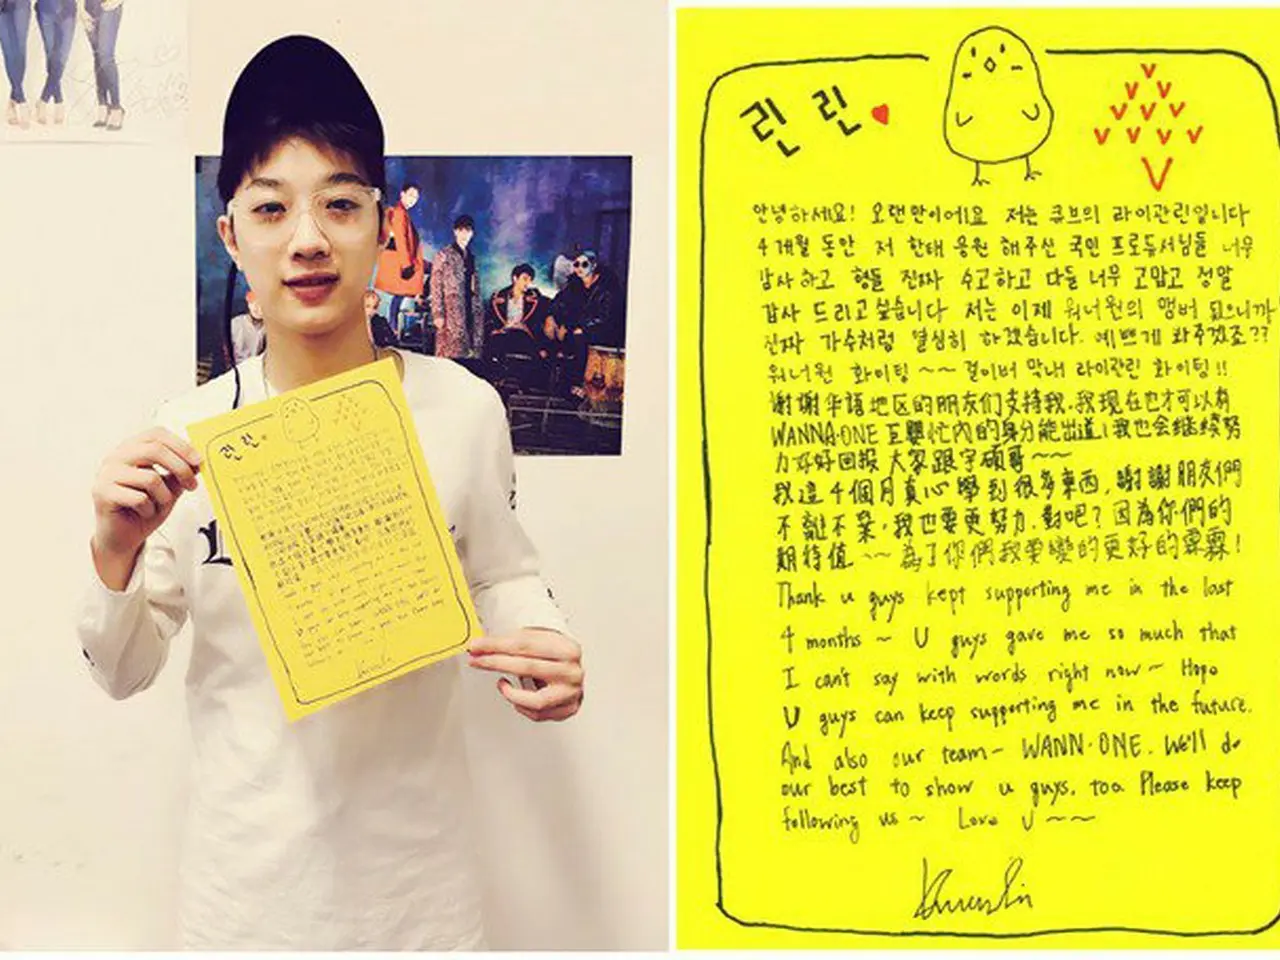 린 린
안녕하세요! 오랜만이에요 저는 큐브의 라이관린입니다
4개월 동안 저 한태 응원 해주신 국민 프로듀서님들 너무
감사하고 형들 진짜 수고하고 다들 너무 고맙고 정말
감사 드리고싶습니다 저는 이제 워너원의 멤버 됐으니까
진짜 가수처럼 열심히 하겠습니다. 예쁘게 봐주겠죠??
워너원 화이팅~~ 걸이버 막내 라이관린 화이팅!!
謝謝华語地区的朋友们支持我.我現在也才可以有
WANNA·ONE 巨嬰忙內的身分能出道!我也会継续努
力好好回报 大家跟宇碩哥~~
我這4個月真心學到很多東西, 謝謝朋友們
不離不棄,我也要更努力,對吧? 因為你們的
期待值~~為了你們我要變的更好的霖霖!
Thank u guys kept supporting me in the last
4 months~ U guys gave me so much that
I can't say with words right now~ Hope
U guys can keep supporting me in the future.
And also our team~ WANN·ONE. We'll do
our best to show u guys, too. Please keep
following us~ Love U~~